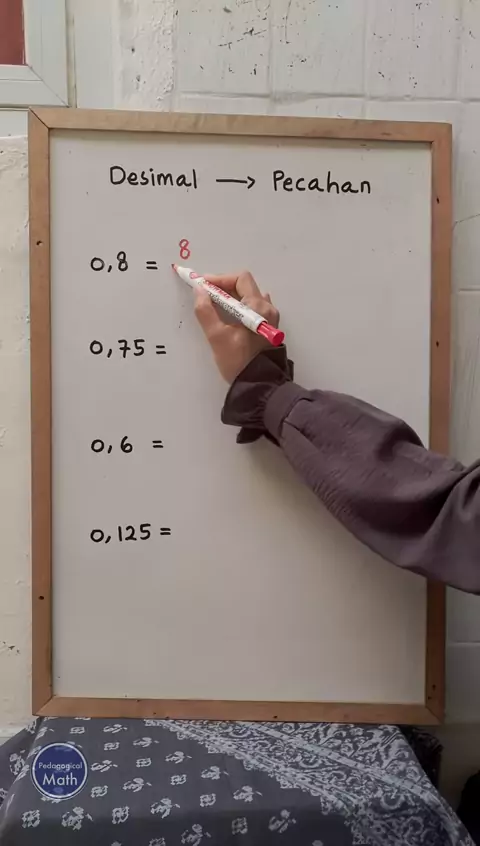 Desimal → Pecahan
0,8 = 8
0,75 =
0,6 =
0,125 =
Pedagogical
Math